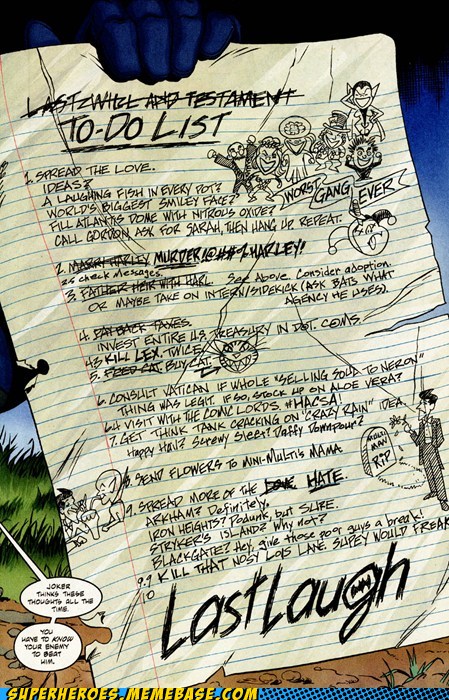 LAST WILL AND TESTAMENT
TO-DO LIST
1. SPREAD THE LOVE.
IDEAS?
A LAUGHING FISH IN EVERY POT?
WORLD'S BIGGEST SMILEY FACE?
FILL ATLANTIS DOME WITH NITROUS OXIDE?
CALL GORDON ASK FOR SARAH, THEN HANG UP. REPEAT.
WORST GANG EVER
2. MARRY HARLEY MURDER !@##% HARLEY!
2.5 check messages.
3. FATHER HEIR WITH HARL. See Above. Consider adoption.
OR MAYBE TAKE ON INTERN/SIDEKICK (ASK BATS WHAT
AGENCY HE USES).
4. PAY BACK TAXES.
INVEST ENTIRE U.S. TREASURY IN DOT. COMS.
4.5 KILL LEX. TWICE.
5. FEED CAT. BUY CAT.
6. CONSULT VATICAN IF WHOLE "SELLING SOUL TO NERON"
THING WAS LEGIT. IF SO, STOCK UP ON ALOE VERA?
6.4 VISIT WITH THE COMIC LORDS. #HACSA!
7. GET THINK TANK CRACKING ON "CRAZY RAIN" IDEA.
Happy Hail? Screwy Sleet? Daffy Downpour?
MULTI
MAN
RIP
8. SEND FLOWERS TO MINI-MULTI'S MAMA.
9. SPREAD MORE OF THE LOVE HATE.
ARKHAM? Definitely.
IRON HEIGHTS? Podunk, but SURE.
STRYKER'S ISLAND? Why not?
BLACKGATE? Hey, give those poor guys a break!
9.9 KILL THAT NOSY LOIS LANE. SUPEY WOULD FREAK
10
Last Laugh
JOKER
THINKS THESE
THOUGHTS ALL THE
TIME.
YOU
HAVE TO KNOW
YOUR ENEMY
TO BEAT
HIM.
SUPERHEROES.MEMEBASE.COM